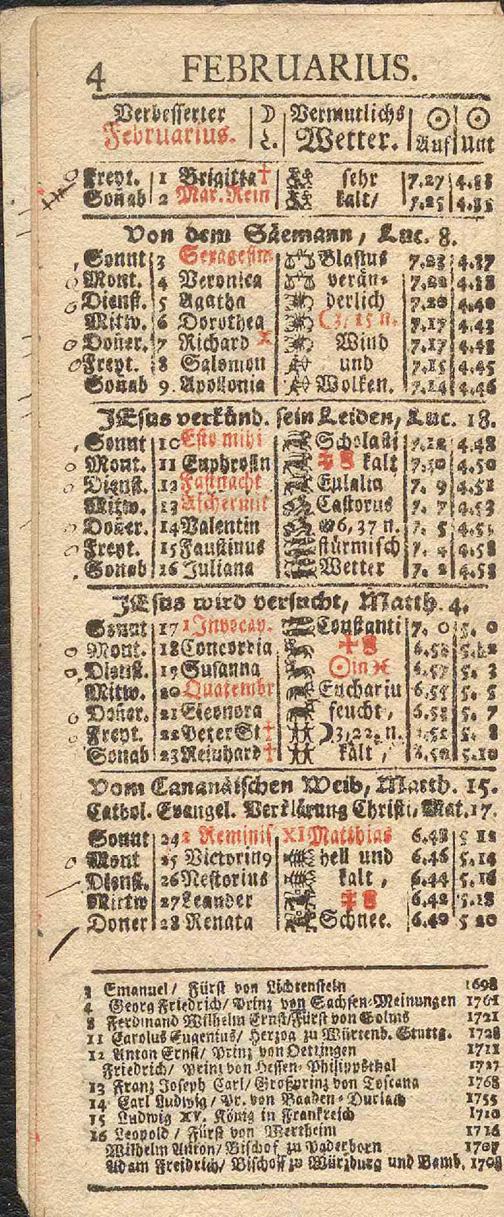 4 FEBRUARIUS.
Verbesserter Februarius. | ☽ L. | Vermutlichs Wetter. | ☉ Auf | ☉ Unt
Freyt. 1 Brigitta † sehr 7.27 4.33
Sonab 2 Mar. Rein kalt/ 7.25 4.35
Von dem Säemann, Luc. 8.
Sonnt 3 Sexagesim Blasius 7.23 4.37
Mont. 4 Veronica verän- 7.22 4.38
Dienst. 5 Agatha derlich 7.20 4.40
Mitw. 6 Dorothea ☾3, 15 n. 7.17 4.43
Doner. 7 Richard X Wind 7.17 4.43
Freyt. 8 Salomon und 7.15 4.45
Sonab 9. Apollonia Wolken. 7.14 4.46
JEsus verkünd. sein Leiden, Luc. 18.
Sonnt 10 Esto mihi Scholasti 7.12 4.48
Mont. 11 Euphrosin kalt 7.10 4.50
Dienst. 12 Fastnacht Eulalia 7. 9 4.51
Mitw. 13 Aschermit Castorus 7. 7 4.53
Doner. 14 Valentin 6, 37 n. 7. 5 4.55
Freyt. 15 Faustinus stürmisch 7. 4.58
Sonab 16 Juliana Wetter 7. 2 4.58
JEsus wird versucht, Matth. 4.
Sonnt 17 1 Invocav. Constanti 7. 0 5. 0
Mont. 18 Concordia 6.58 5.
Dienst. 19 Susanna ☉in ♓ 6.57 5. 3
Mitw. 20 Quatembr Euchariu 6.55 5. 5
Doner. 21 Eleonora feucht, 6.53 5. 7
Freyt. 22 Peter St † ☽3,22. n. 6.52 5. 8
Sonab 23 Reinhard † kält, 6.50 5.10
Vom Cananäischen Weib, Matth. 15.
Cathol. Evangel. Verklärung Christi, Mat. 17.
Sonnt 24 2 Reminis XI Matthias 6.48 5 12
Mont 25 Victorin9 hell und 6.46 5.14
Dienst. 26 Nestorius kalt, 6.44 5.16
Mittw 27 Leander 6.42 5.18
Doner 28 Renata Schnee. 6.40 5 20
3 Emanuel/ Fürst von Lichtenstein 1698
4 Georg Friedrich/ Prinz von Sachsen-Meinungen 1761
8 Ferdinand Wilhelm Ernst/ Fürst von Solms 1721
11 Carolus Eugenius/ Herzog zu Würtenb. Stuttg. 1728
12 Anton Ernst/ Prinz von Oettingen 1711
Friedrich/ Prinz von Hessen-Philippsthal 1727
13 Franz Joseph Carl/ Großprinz von Toscana 1768
14 Carl Ludwig/ Pr. von Baaden-Durlach 1755
15 Ludwig XV. König in Frankreich 1710
16 Leopold / Fürst von Wertheim 1716
Wilhelm Anton/ Bischof zu Paderborn 1707
Adam Freidrich/ Bischoff zu Würzburg und Bamb. 1708